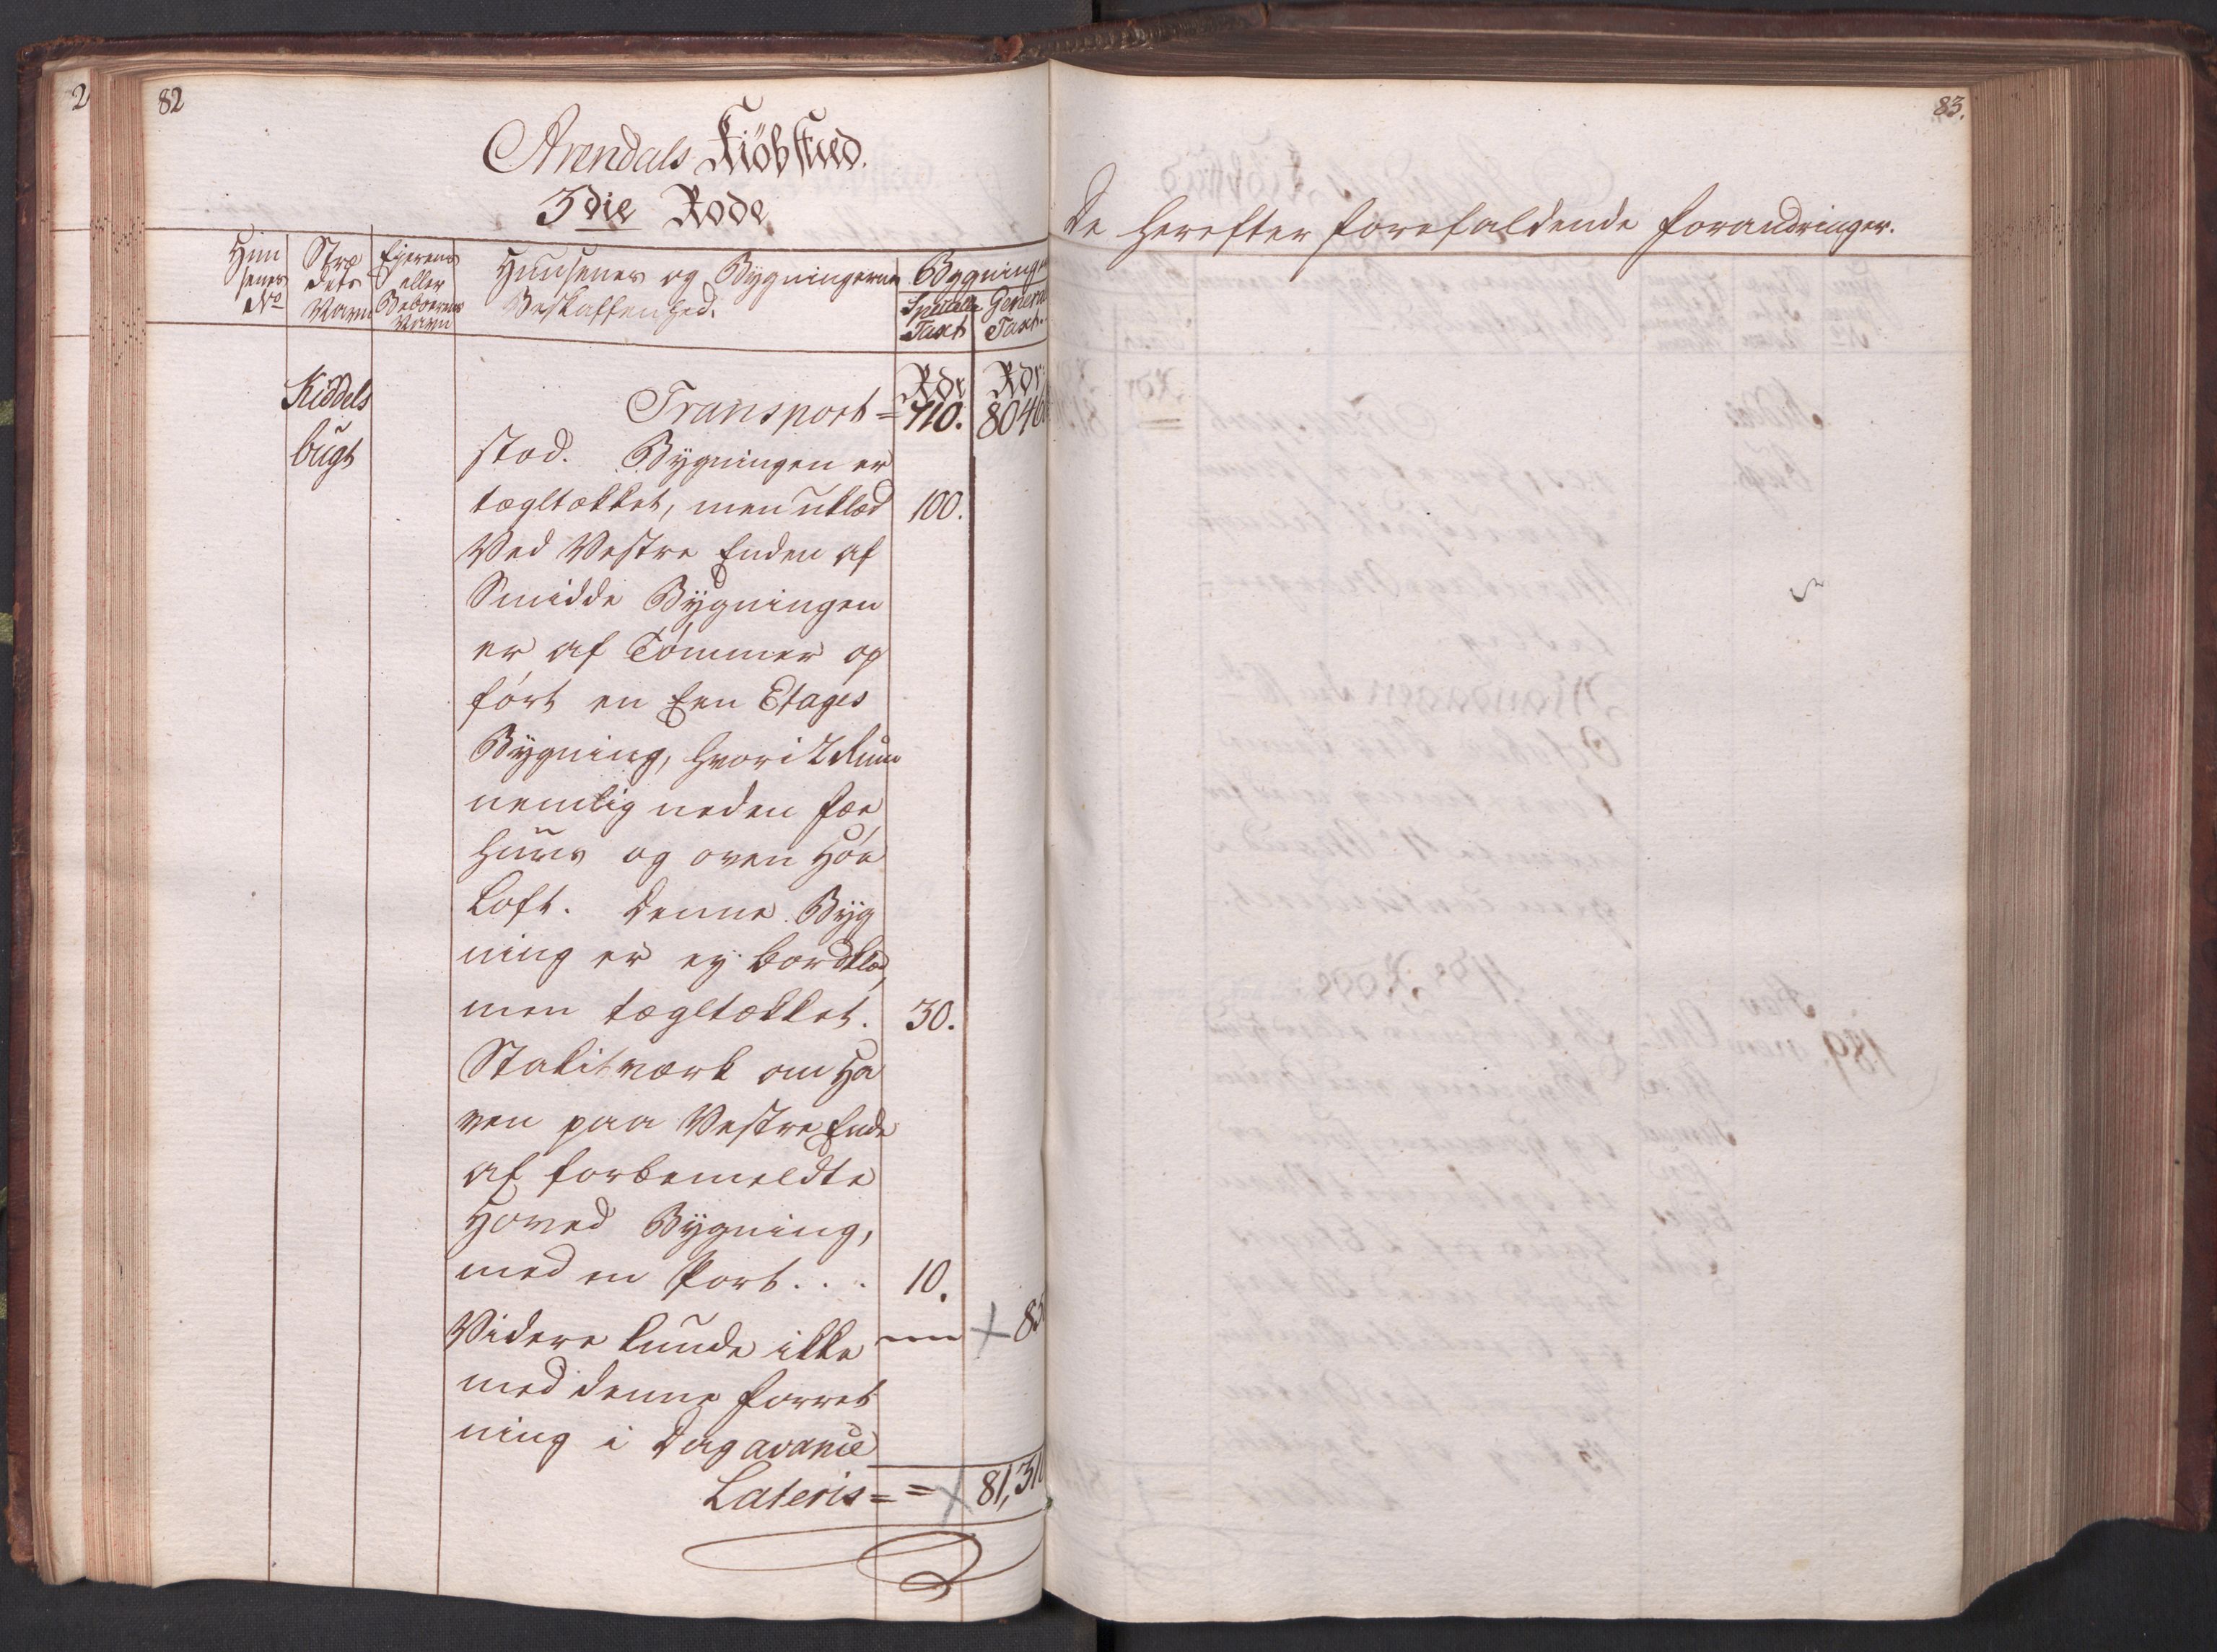 2
82
Arendals Kiöbsted.
3die Rode
Huu
senes
No
Stræ
dets
Navn
Ejerens
eller
Beboerens
Navn
Huusenes og Bygningernes
Beskaffenhed.
Bygninge
Specielle
Taxt
General
Taxt.
Kiddels
bugt
Rdr Rdr
Transport = 710. 8046
stod. Bygningen er
tægltækket, men uklæd 100.
Ved Vestre Enden af
Smidde Bygningen
er af Tømmer op
ført en Een Etages
Bygning, hvori 2 Rum
nemlig neden Fæe
Huus og oven Høe
Loft. Denne Byg
ning er ey bordklæd,
men tægltækket. 30.
Stakitværk om Ha
ven paa Vestre Ende
af forbemeldte
Hoved Bygning,
med en Port . . . 10.
Videre kunde ikke + 85
med denne Forret
ning i Dag avance
Lateris = = 81,310
83.
De herefter forefaldende Forandringer.